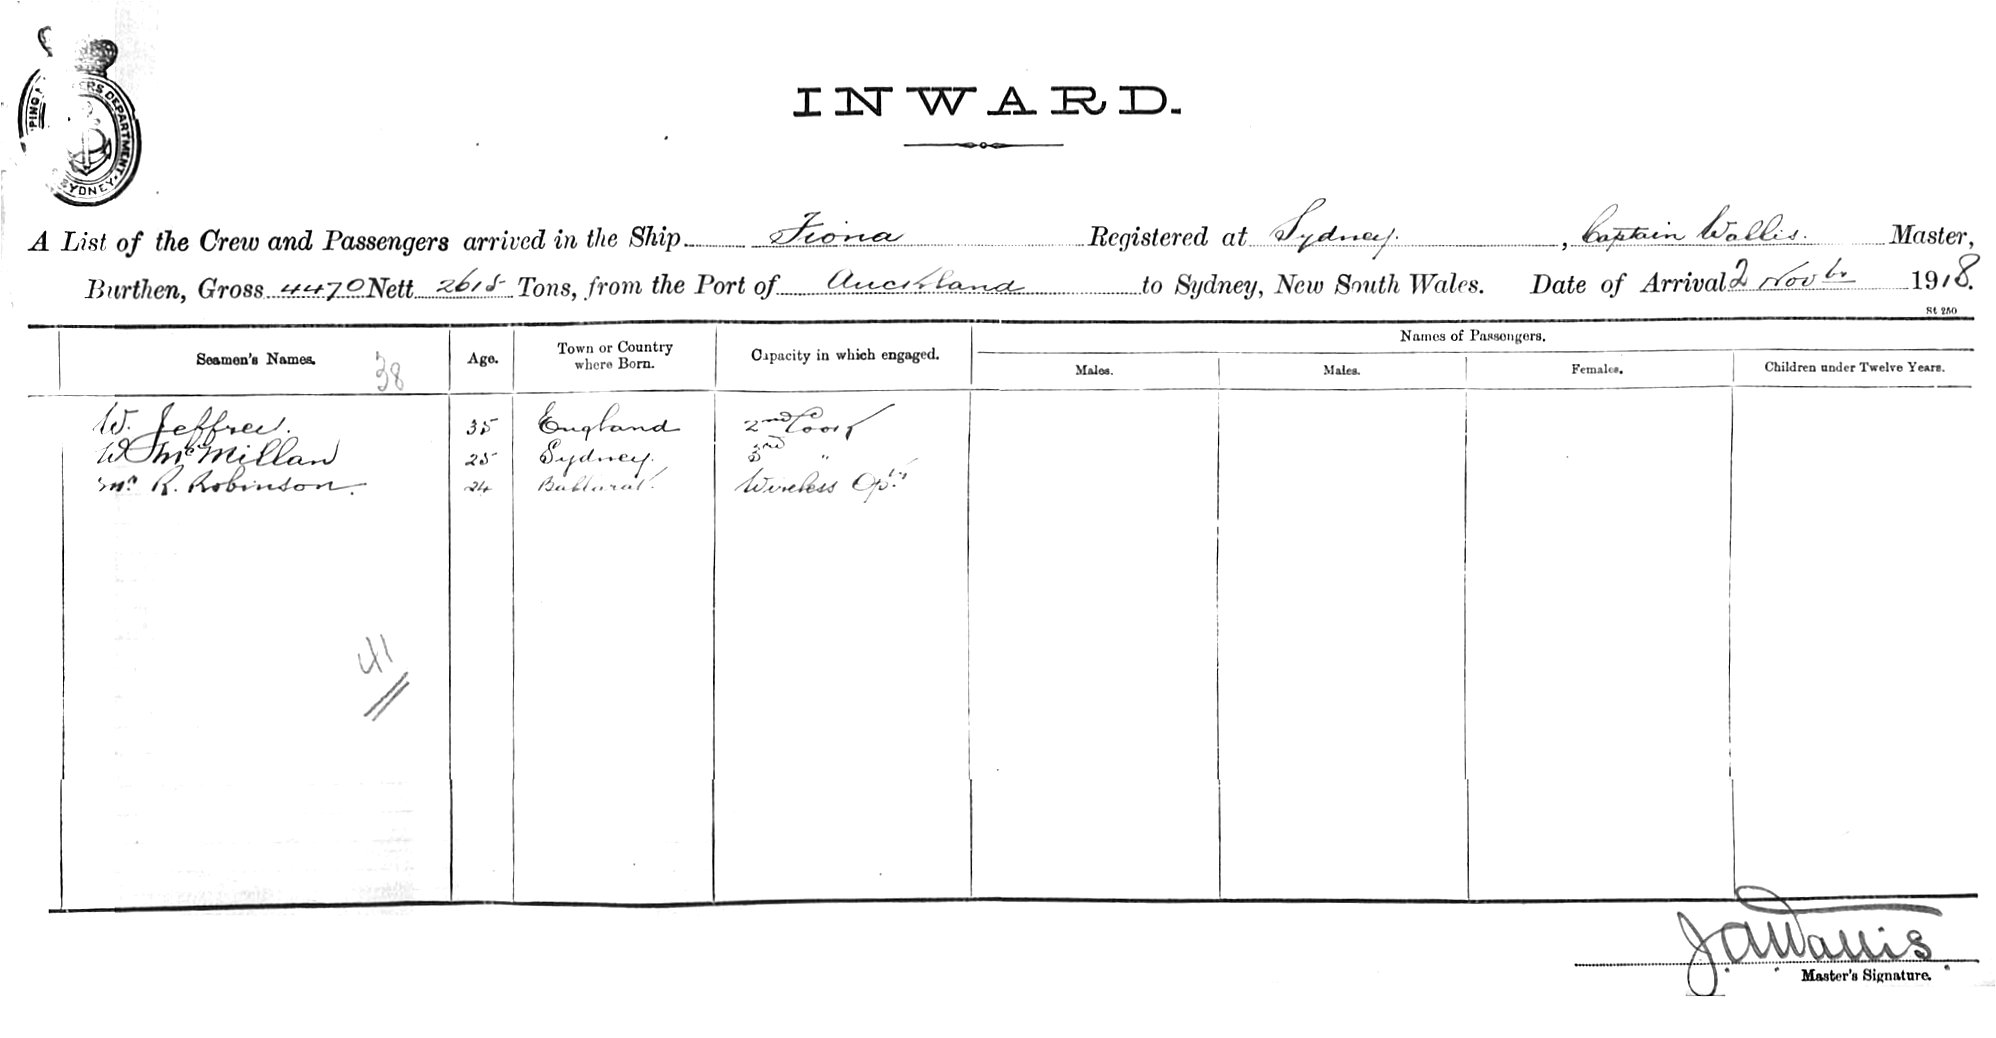 PING M ERS DEPARTMENT. SYDNEY.
INWARD.
A List of the Crew and Passengers arrived in the Ship Fiona Registered at Sydney. , Captain Wallis. Master,
Burthen, Gross 4470 Nett 2615 Tons, from the Port of Auckland to Sydney, New South Wales. Date of Arrival 2 Novbr 1918.
St 250
Seamen's Names. 38 Age. Town or Country where Born. Capacity in which engaged. Names of Passengers.
Males. Males. Females. Children under Twelve Years.
W. Jeffrey. 35 England 2nd Cook
W McMillan 25 Sydney. 3rd "
Mr R. Robinson. 24 Ballarat. Wireless Optr.
41
J A Wallis
Master's Signature.